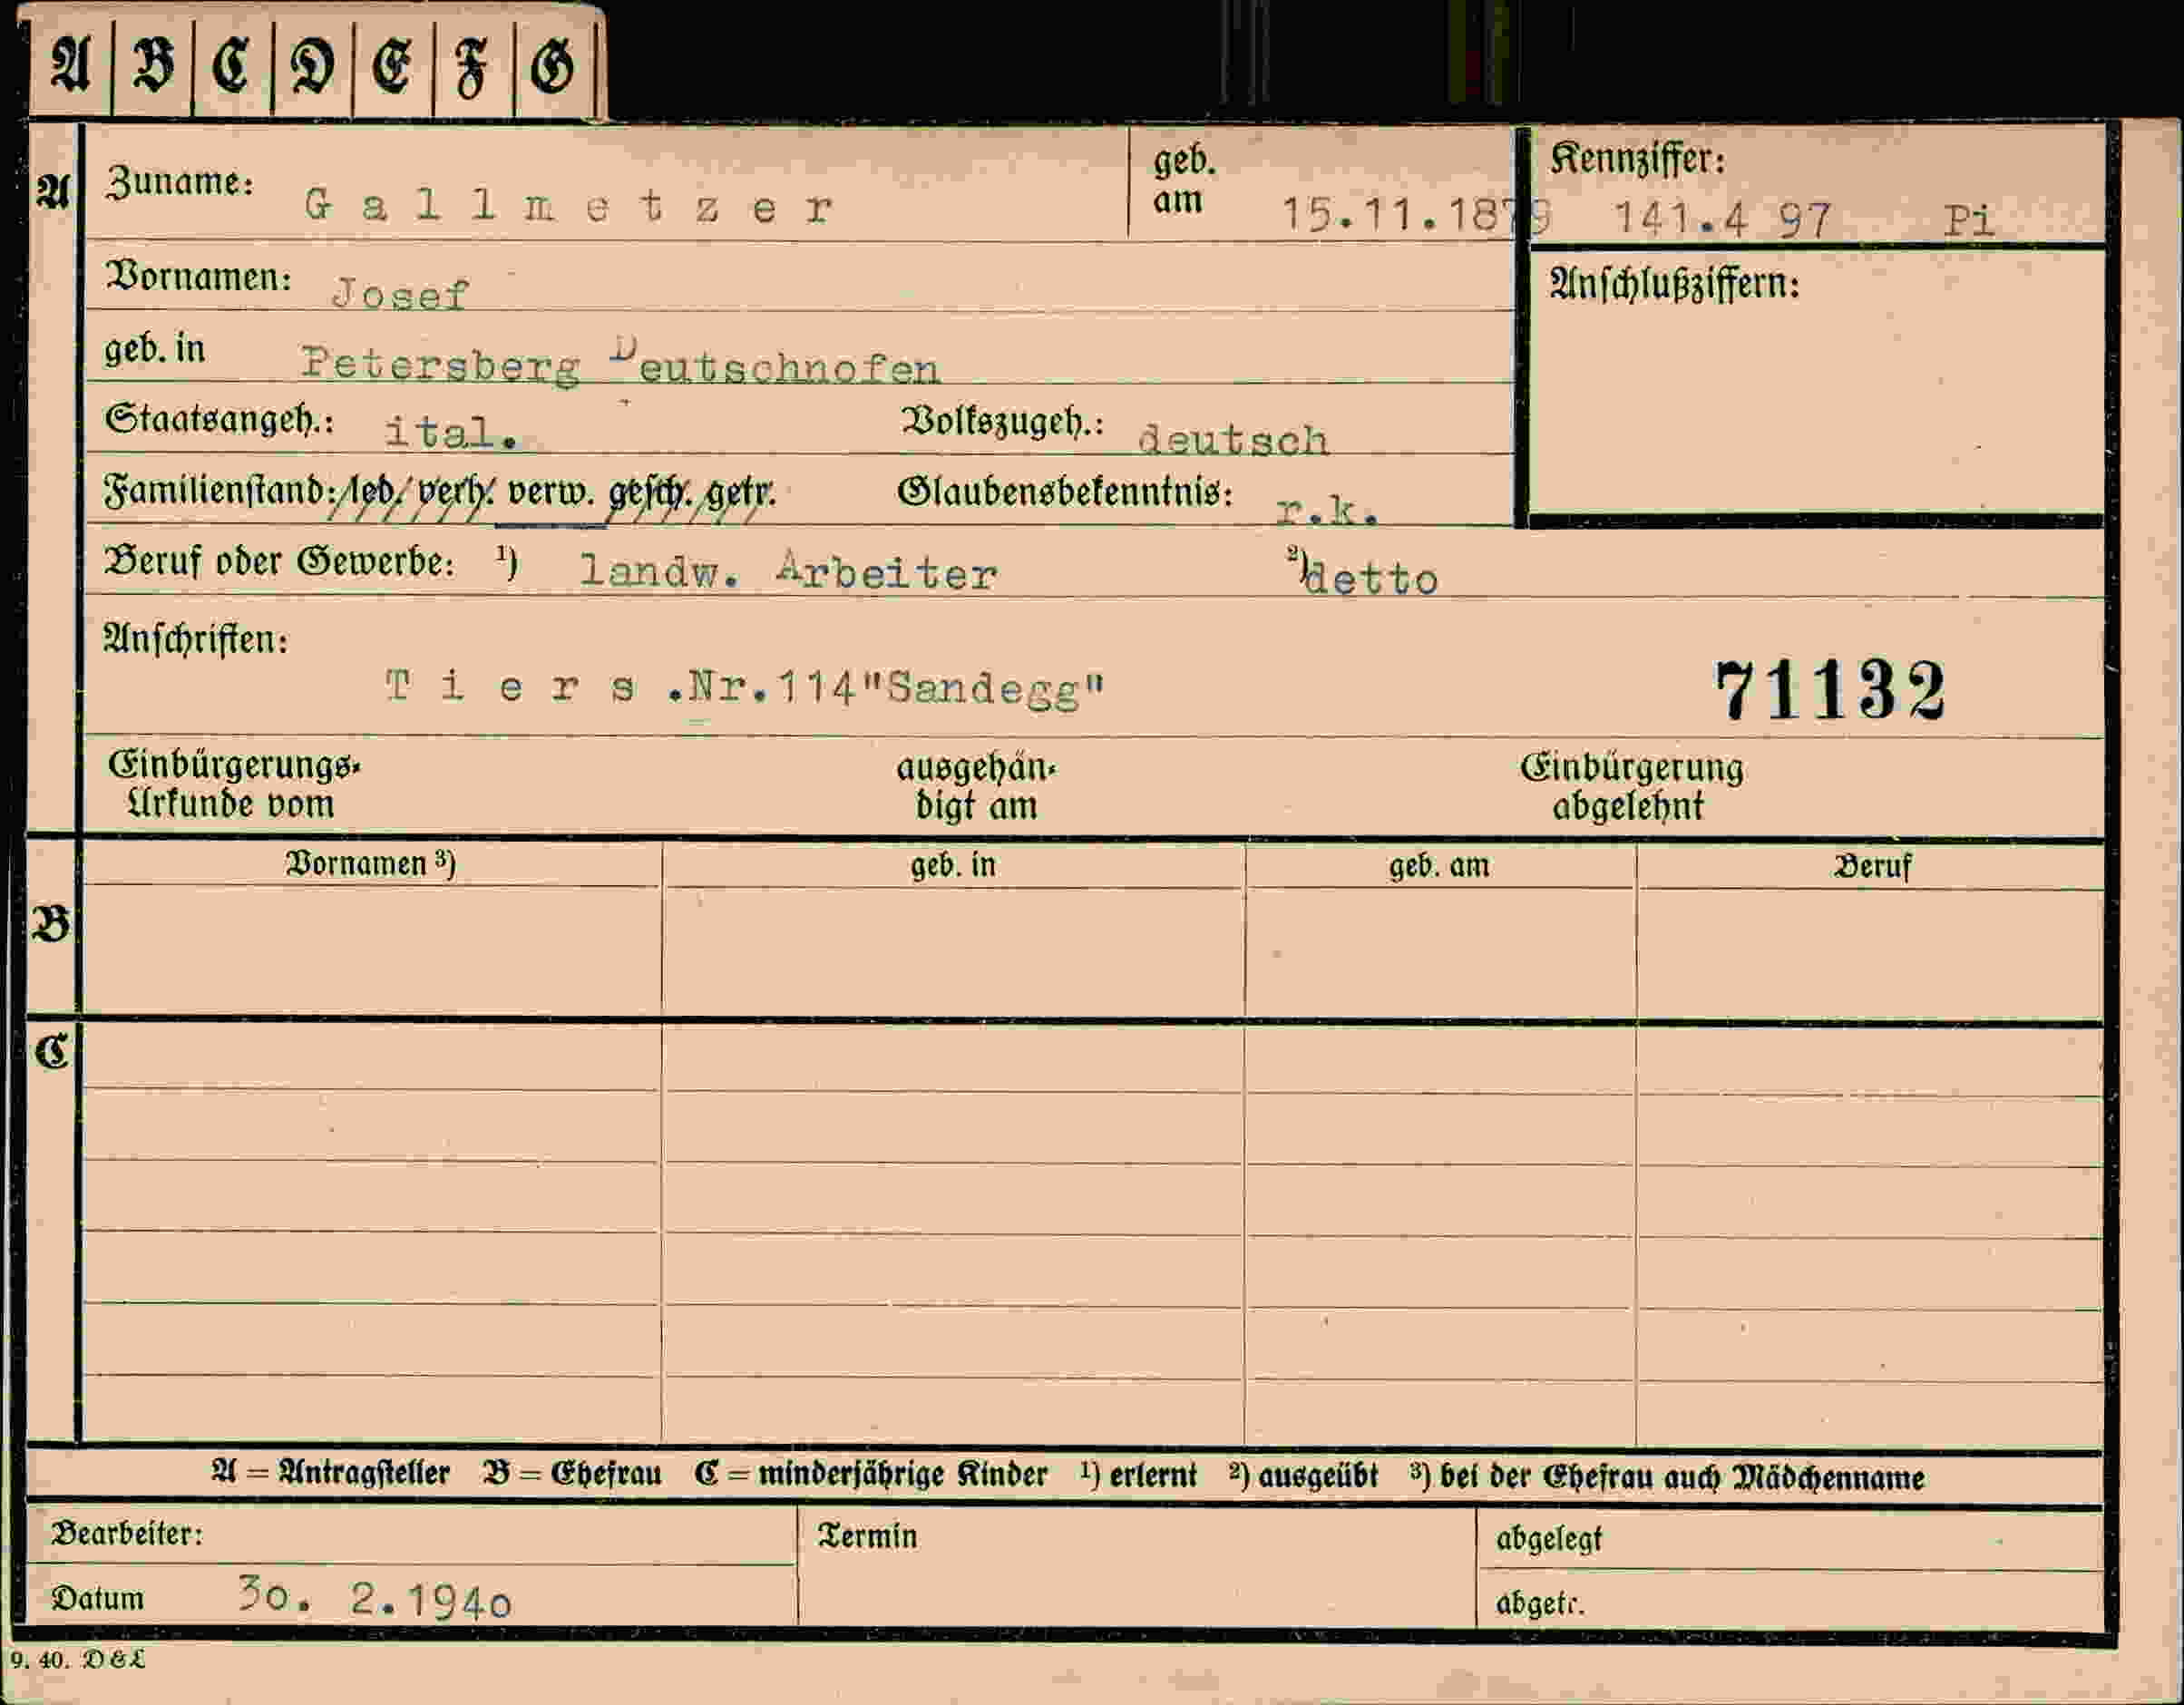 A B C D E F G
A Zuname: Gallmetzer geb. am 15.11.1879 Kennziffer: 141.4 97 Pi
Vornamen: Josef Anschlußziffern:
geb. in Petersberg Deutschnofen
Staatsangeh.: ital. Volkszugeh.: deutsch
Familienstand: led. verh. verw. gesch. getr. Glaubensbekenntnis: r.k.
Beruf oder Gewerbe: ¹) landw. Arbeiter ²) detto
Anschriften:
Tiers.Nr.114"Sandegg" 71132
Einbürgerungs- ausgehän- Einbürgerung
Urkunde vom digt am abgelehnt
Vornamen ³) geb. in geb. am Beruf
B
C
A = Antragsteller B = Ehefrau C = minderjährige Kinder ¹) erlernt ²) ausgeübt ³) bei der Ehefrau auch Mädchenname
Bearbeiter: Termin abgelegt
Datum 3o. 2.194o abgetr.
9. 40. D & L